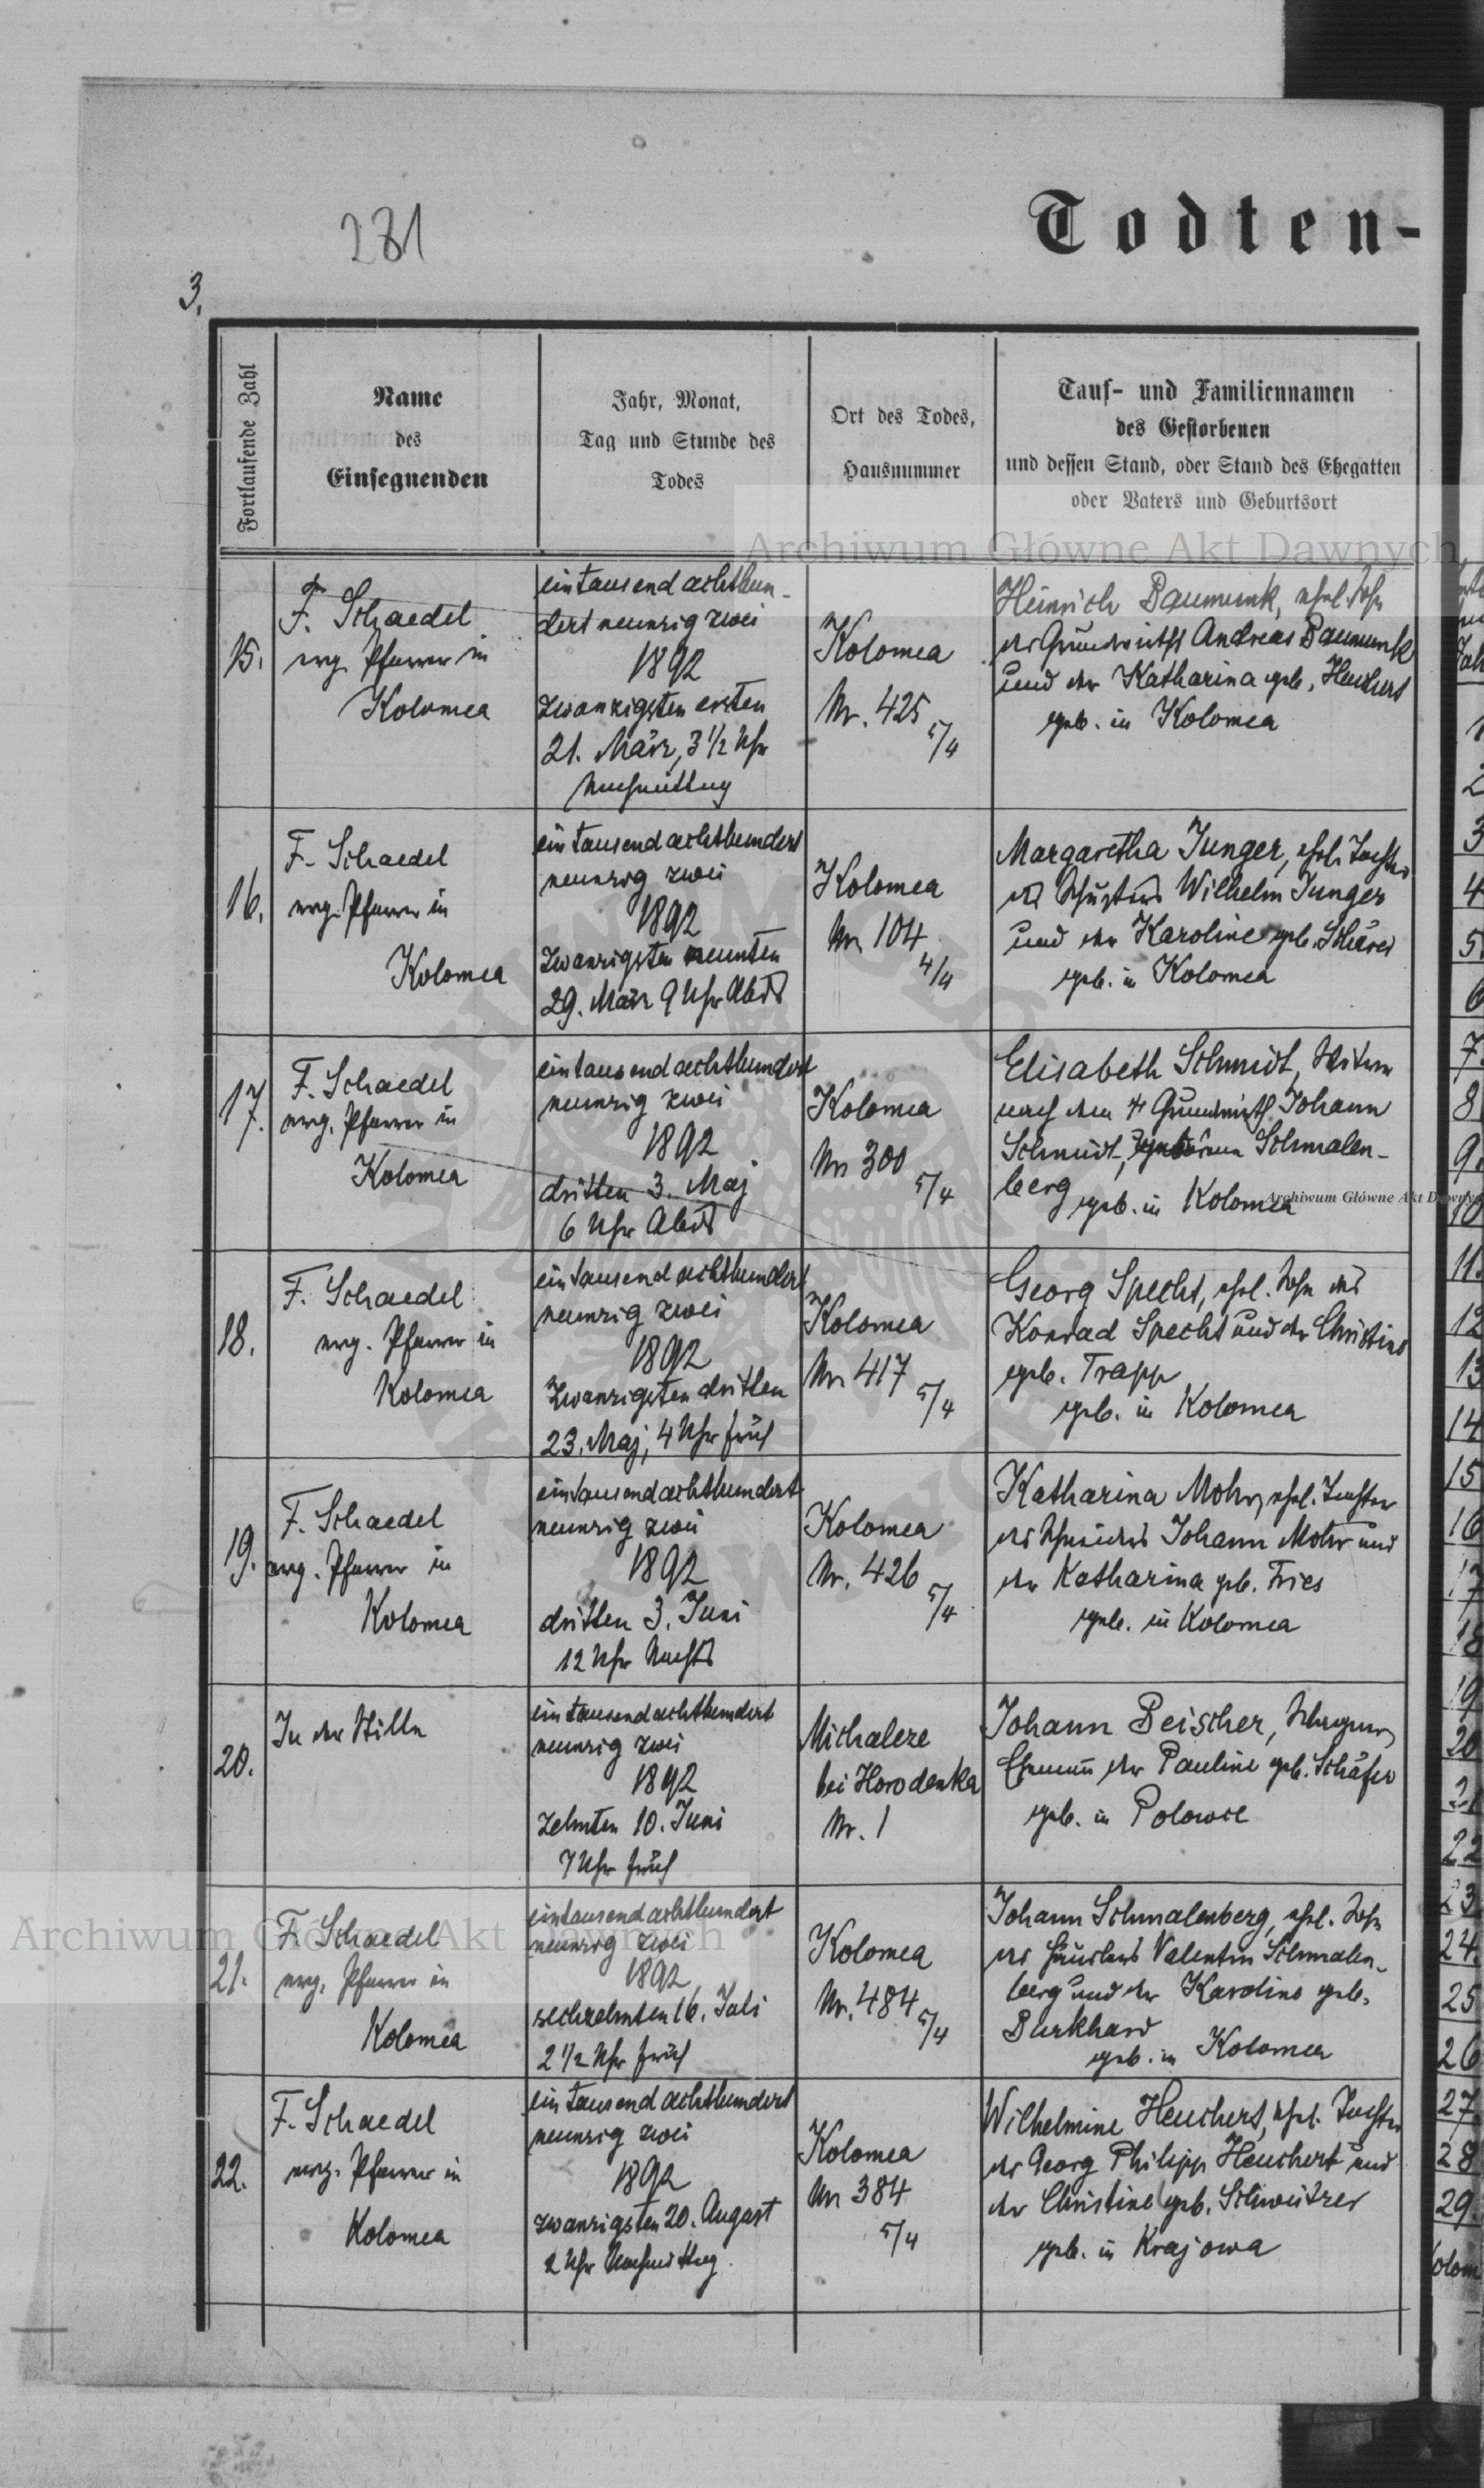 281
Todten-
3.
Fortlaufende Zahl
Name
des
Einsegnenden
Jahr, Monat,
Tag und Stunde des
Todes
Ort des Todes,
Hausnummer
Tauf- und Familiennamen
des Gestorbenen
und dessen Stand, oder Stand des Ehegatten
oder Vaters und Geburtsort
Archiwum Główne Akt Dawnych
15.
F. Schaedel
evg. Pfarrer in
Kolomea
eintausend achthun-
dert neunzig zwei
1892
zwanzigsten ersten
21. März, 3 1/2 Uhr
Nachmittag
Kolomea
Nr. 425
5/4
Heinrich Baumunk, ehel. Sohn
des Grundwirths Andreas Baumunk
und der Katharina geb. Heuchert
geb. in Kolomea
16.
F. Schaedel
evg. Pfarrer in
Kolomea
ein tausend achthundert
neunzig zwei
1892
zwanzigsten neunten
29. März 9 Uhr Abds
Kolomea
Nr. 104
4/4
Margaretha Junger, ehel. Tochter
des Schusters Wilhelm Junger
und der Karoline geb.
geb. in Kolomea
17.
F. Schaedel
evg. Pfarrer in
Kolomea
eintausend achthundert
neunzig zwei
1892
dritten 3. Maj
6 Uhr Abds
Kolomea
Nr 300
5/4
Elisabeth Schmidt, Witwe
nach dem † Grundwirth Johann
Schmidt, geborene Schmalen-
berg geb. in Kolomea
Archiwum Główne Akt Dawnych
18.
F. Schaedel
evg. Pfarrer in
Kolomea
ein tausend achthundert
neunzig zwei
1892
zwanzigsten dritten
23. Maj, 4 Uhr früh
Kolomea
Nr 417
5/4
Georg Specht, ehel. Sohn des
Konrad Specht und der Christine
geb. Trapp
geb. in Kolomea
19.
F. Schaedel
evg. Pfarrer in
Kolomea
eintausend achthundert
neunzig zwei
1892
dritten 3. Juni
12 Uhr Nachts
Kolomea
Nr. 426
5/4
Katharina Mohr, ehel. Tochter
des Schneiders Johann Mohr und
der Katharina geb. Fries
geb. in Kolomea
20.
In der Stille
ein tausend achthundert
neunzig zwei
1892
zehnten 10. Juni
7 Uhr früh
Michalcze
bei Horodenka
Nr. 1
Johann Beischer,
Ehemann der Pauline geb. Schäfer
geb. in Polowce
21.
F. Schaedel
evg. Pfarrer in
Kolomea
eintausend achthundert
neunzig zwei
1892
sechzehnten 16. Juli
2 1/2 Uhr früh
Kolomea
Nr. 484
5/4
Johann Schmalenberg, ehel. Sohn
des Häuslers Valentin Schmalen-
berg und der Karoline geb.
Burkhard
geb. in Kolomea
Archiwum Główne Akt Dawnych
22.
F. Schaedel
evg. Pfarrer in
Kolomea
ein tausend achthundert
neunzig zwei
1892
zwanzigsten 20. August
2 Uhr Nachmittag
Kolomea
Nr 384
5/4
Wilhelmine Heuchert, ehel. Tochter
des Georg Philipp Heuchert und
der Christine geb. Schweitzer
geb. in Krajowa
3
4
5.
6
7.
8
9.
10
11.
12
13
14
15
16
17
18
19
20
21
22
23
24.
25
26
27.
28
29.